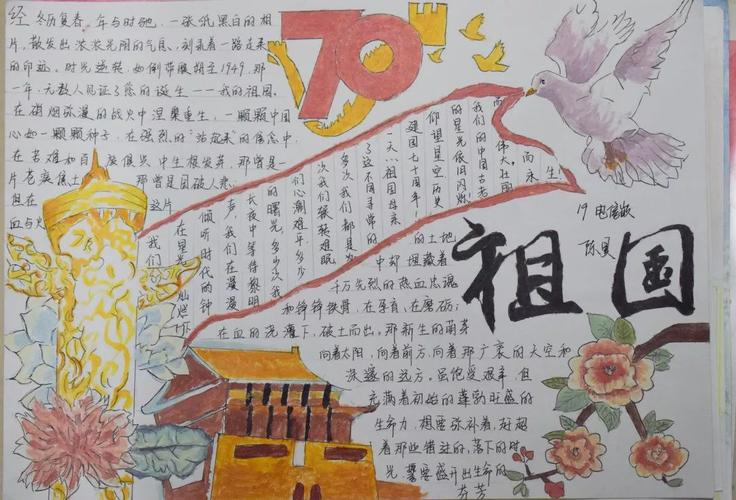 70
经冬历复春,年与时驰,一张纸黑白的相
片,散发出浓浓光阴的气息,刻录着一路走来
的印迹,时光逆转,如倒带般溯至1949,那
一年,无数人见证了您的诞生——我的祖国。
在硝烟弥漫的战火中涅槃重生,一颗颗中国
心如一颗颗种子,在强烈的"站起来"的信念中,
在苦难和百废俱兴中生根发芽,那曾是一
片苍凉焦土 那曾是国破人悲
但在 这片
血与火
的土地
中却埋藏着
千万先烈的热血忠魂
和铮铮铁骨,在孕育,在磨砺;
在血的洗礼下,破土而出。那新生的萌芽
向着太阳,向着前方,向着那广袤的天空和
深邃的远方。虽饱受艰辛,但
充满着初始的蓬勃旺盛的
生命力,想要弥补着,
着那些错过的,落下的时
光,需要盛开出生命的
芬芳
我们
在星光灿烂下
倾听时代的钟
声,我们在漫漫
长夜中等待黎明
的曙光,多少次我
们心潮难平,多少
次我们辗转难眠
多次我们都是为
了这不同寻常的
一天…祖国母亲
建国七十周年!
仰望星空,历史
的星光依旧闪烁
我们的中国古老
而伟大,壮丽
而永生!
19
祖国